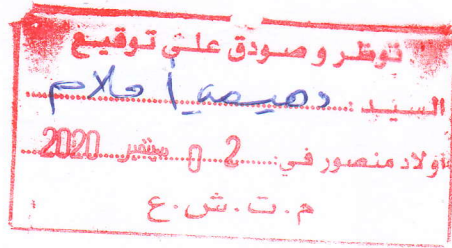 نوظر و صودق على توقيع
السيد : دهيميا أحلام
أولاد منصور في: 2 0 سبتمبر 2020
م.ت.ش.ع